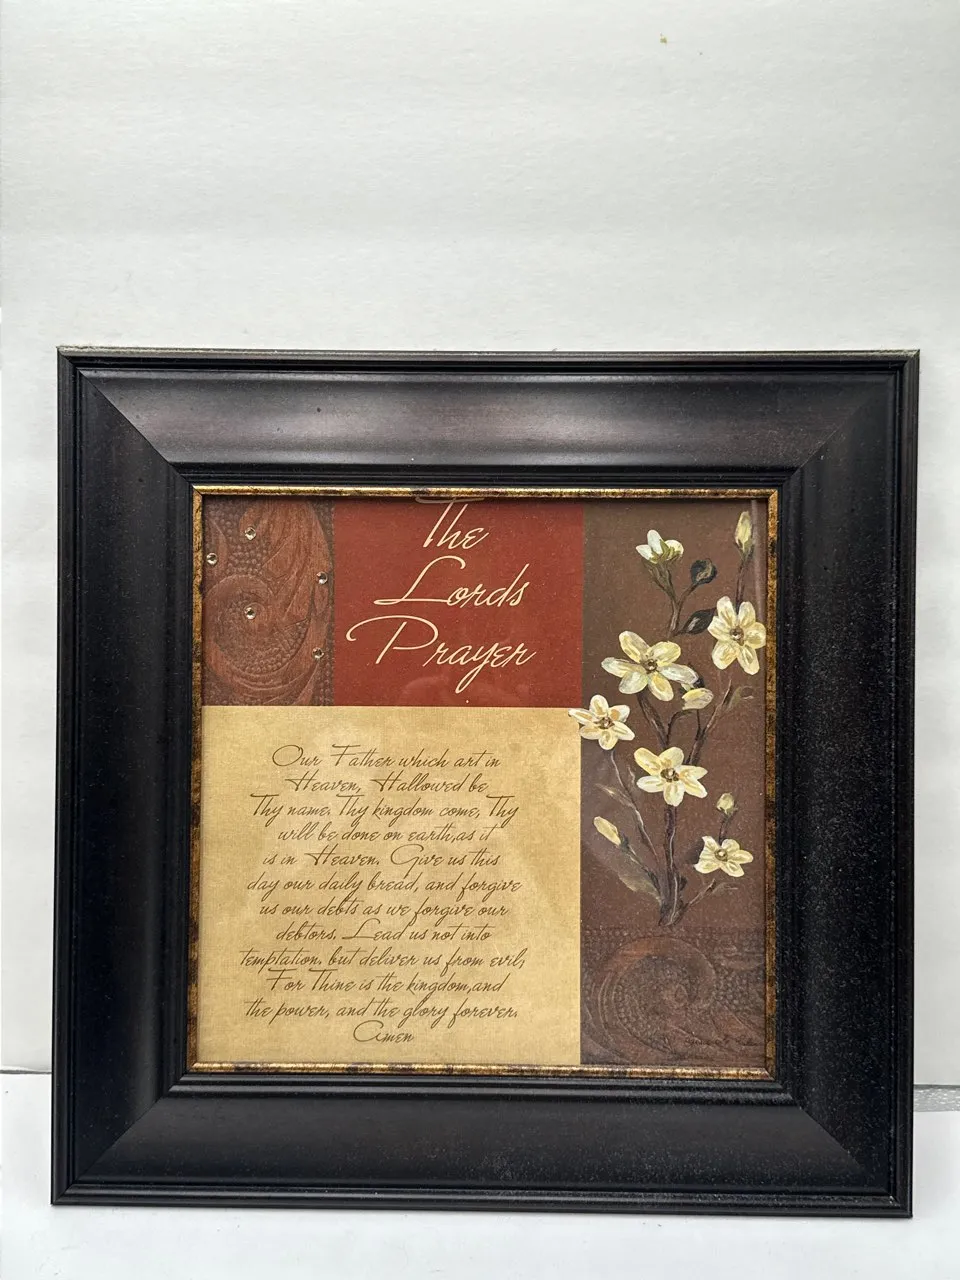 The
Lords
Prayer
Our Father which art in
Heaven, Hallowed be
Thy name. Thy kingdom come, Thy
will be done on earth,as it
is in Heaven. Give us this
day our daily bread, and forgive
us our debts as we forgive our
debtors. Lead us not into
temptation, but deliver us from evil;
For Thine is the kingdom,and
the power, and the glory forever.
Amen